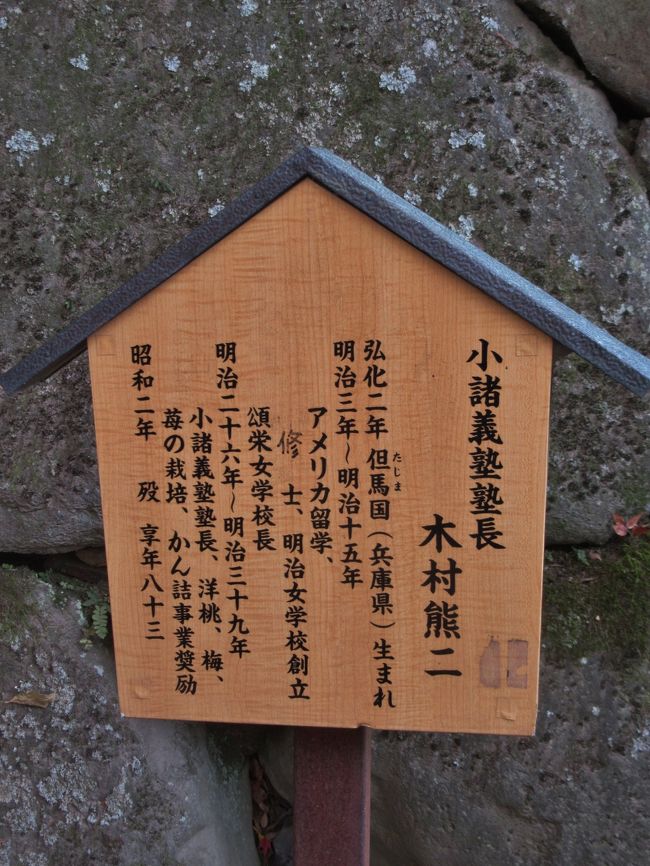 小諸義塾塾長
木村熊二
弘化二年 但馬国(兵庫県)生まれ
たじま
明治三年~明治十五年
アメリカ留学、
修 士、明治女学校創立
頌栄女学校長
明治二十六年~明治三十九年
小諸義塾塾長、洋桃、梅、
苺の栽培、かん詰事業奨励
昭和二年 歿 享年八十三